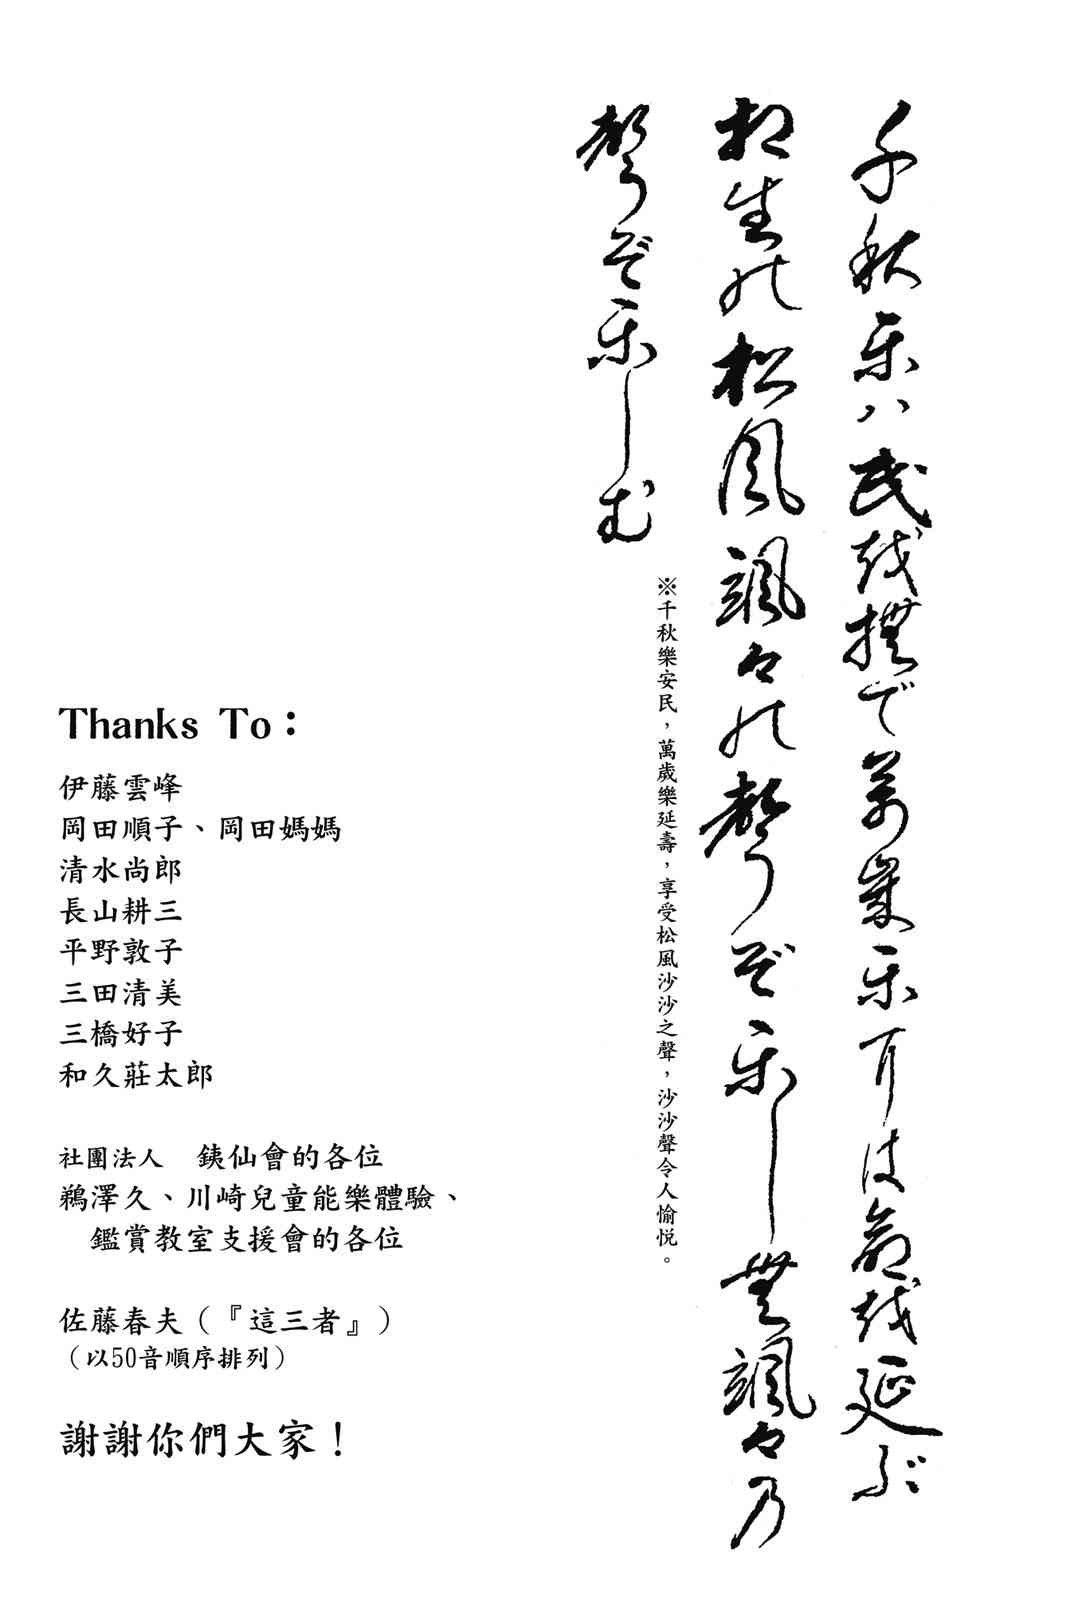 千秋楽ハ民越撫で萬歳楽耳は命越延ぶ
相生能松風颯々能聲ぞ楽しむ颯々乃
聲ぞ楽しむ
※千秋樂安民，萬歲樂延壽，享受松風沙沙之聲，沙沙聲令人愉悅。
Thanks To：
伊藤雲峰
岡田順子、岡田媽媽
清水尚郎
長山耕三
平野敦子
三田清美
三橋好子
和久莊太郎
社團法人　銕仙會的各位
鵜澤久、川崎兒童能樂體驗、
鑑賞教室支援會的各位
佐藤春夫（『這三者』）
（以50音順序排列）
謝謝你們大家！